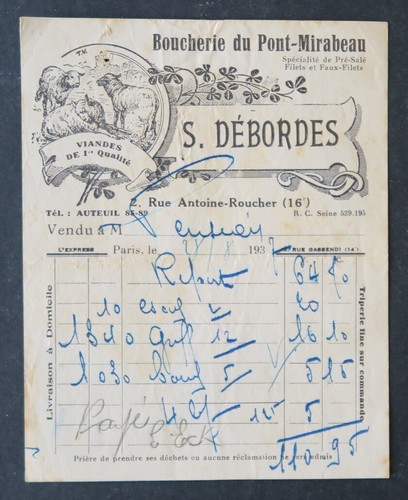 T.V.
Boucherie du Pont-Mirabeau
Spécialité de Pré-Salé
Filets et Faux-Filets
VIANDES
DE 1re Qualité
S. DÉBORDES
2, Rue Antoine-Roucher (16e)
Tél. : AUTEUIL 88-89
R. C. Seine 539.195
Vendu à M
L'EXPRESS
Paris, le 28/8 1937
RUE GASSENDI (14e)
Livraison à Domicile
Triperie fine sur commande
Report 64 70
10 2 20
1340 12 16 10
1030 5 5 15
5
Payé
110 95
Prière de prendre ses déchets ou aucune réclamation ne sera admis